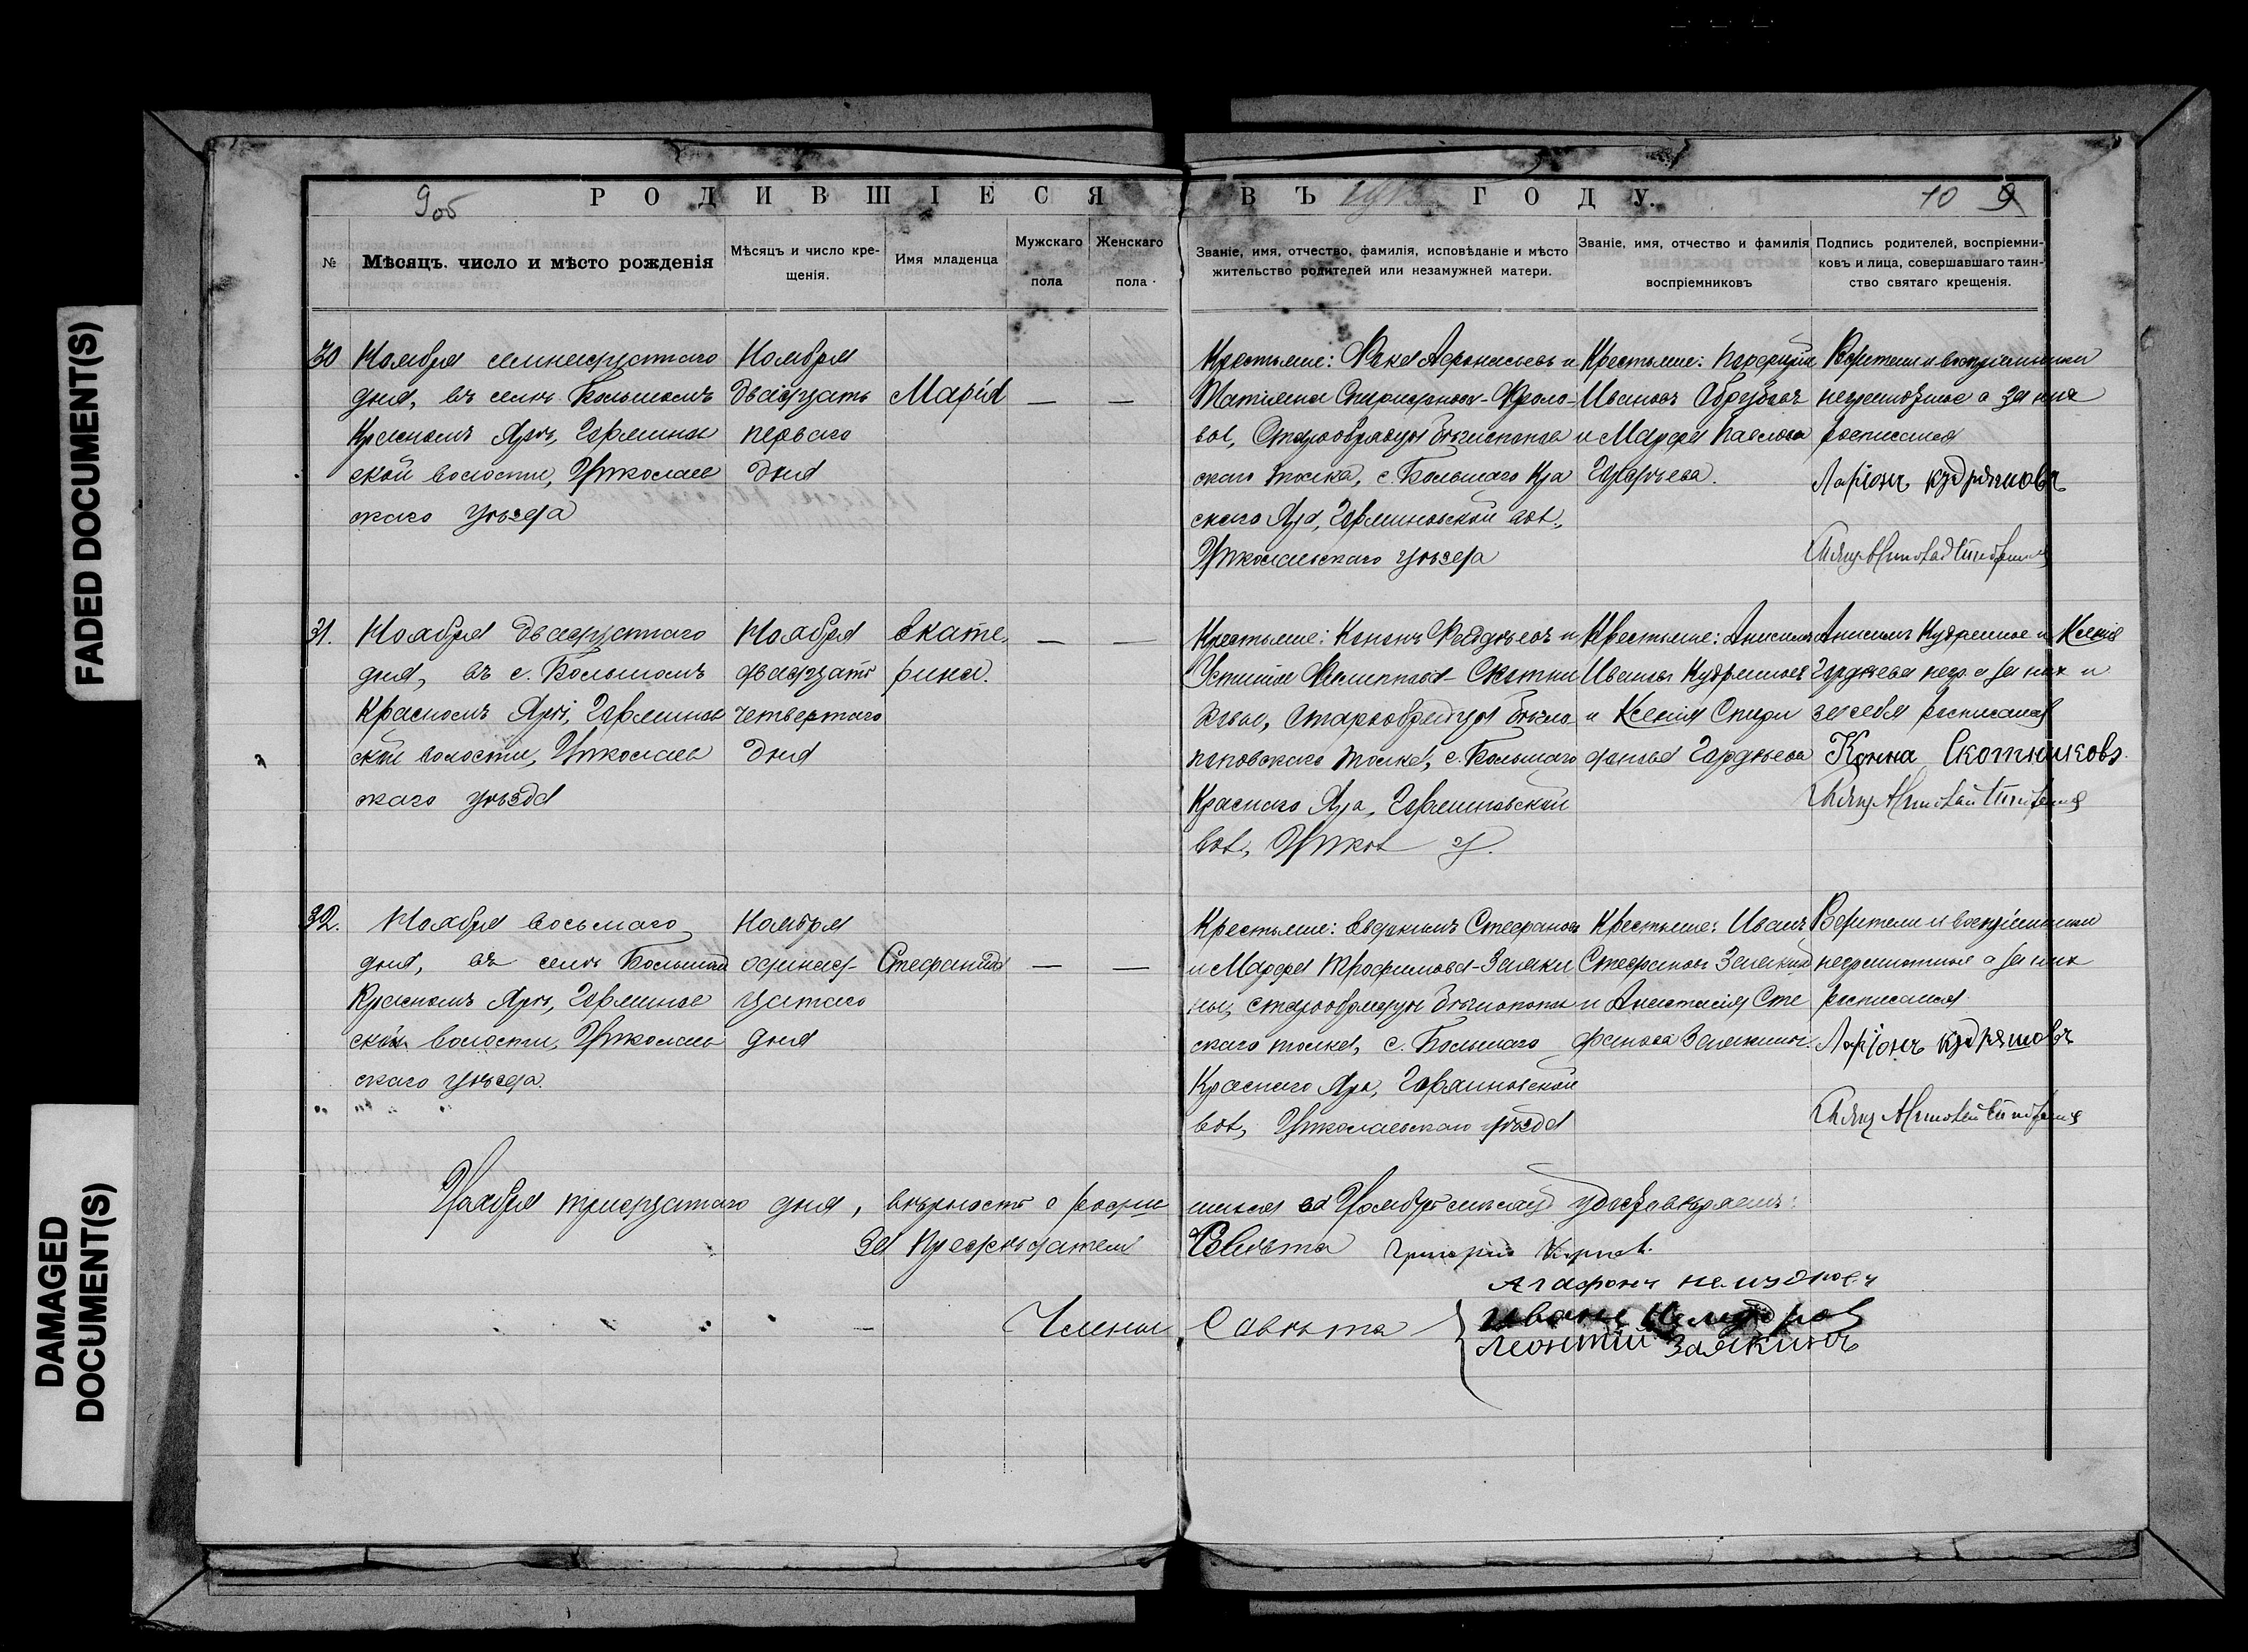 FADED DOCUMENT(S)
DAMAGED
DOCUMENT(S)
9об
РОДИВШІЕСЯ
ВЪ ГОДУ.
10 9
№
Мѣсяцъ, число и мѣсто рожденія
Мѣсяцъ и число кре-
щенія.
Имя младенца
Мужскаго
пола
Женскаго
пола
Званіе, имя, отчество, фамилія, исповѣданіе и мѣсто
жительство родителей или незамужней матери.
Званіе, имя, отчество и фамилія
воспріемниковъ
Подпись родителей, воспріемни-
ковъ и лица, совершавшаго таин-
ство святаго крещенія.
30
Ноября семнадцатаго
дня, въ селѣ Большомъ
Красномъ Ярѣ,
ской волости, Николаев
скаго уѣзда
Ноября
двадцать
перваго
дня
Марія
— —
Крестьяне: Афанасьевъ и
Татіяна Спиридонова - Фроло-
вы, Старообрядцы Бѣглопопов
скаго толка, с. Большаго Кра
снаго Яра, вол.,
Николаевскаго уѣзда
Крестьяне:
Ивановъ
и Марфа Павлова
Родители и воспріемники
неграмотные а за них
росписался
Ларіонъ Кудряшовъ
31.
Ноября двадцатаго
дня, въ с. Большомъ
Красномъ Ярѣ,
ской волости, Николаев
скаго уѣзда
Ноября
двадцать
четвертаго
дня
Екате
рина.
— —
Крестьяне: Кононъ и
Устинія Филиппова - Скотни
ковы, Старообрядцы Бѣгло
поповскаго толка, с. Большаго
Краснаго Яра,
вол., Никол. у.
Крестьяне: Анисимъ
Ивановъ Кудряшовъ
и Ксенія Спири
донова Гордѣева
Анисимъ Кудряшов и Ксенія
Гордѣева негр. а за них и
за себя росписался
Конна Скотниковъ
32.
Ноября восьмаго
дня, въ селѣ Большом
Красномъ Ярѣ,
ской волости, Николаев
скаго уѣзда.
Ноября
одинад-
цатаго
дня
Стефанида
— —
Крестьяне: Стефановъ
и Марфа Трофимова - Заяки
ны, старообрядцы Бѣглопопов
скаго толка, с. Большаго
Краснаго Яра,
вол., Николаевскаго уѣзда
Крестьяне: Иванъ
Стефановъ Заякинъ
и Анастасія Сте
фанова Заякина.
Родители и воспріемники
неграмотные а за них
росписался
Ларіонъ Кудряшовъ
Ноября тридцатаго дня, вѣрность о родив
шихся за Ноябрь мѣсяцъ удостовѣряемъ:
За Предсѣдателя
Совѣта Григорій
Агафонъ
Члены Совѣта
Иванъ
Леонтій Заякинъ